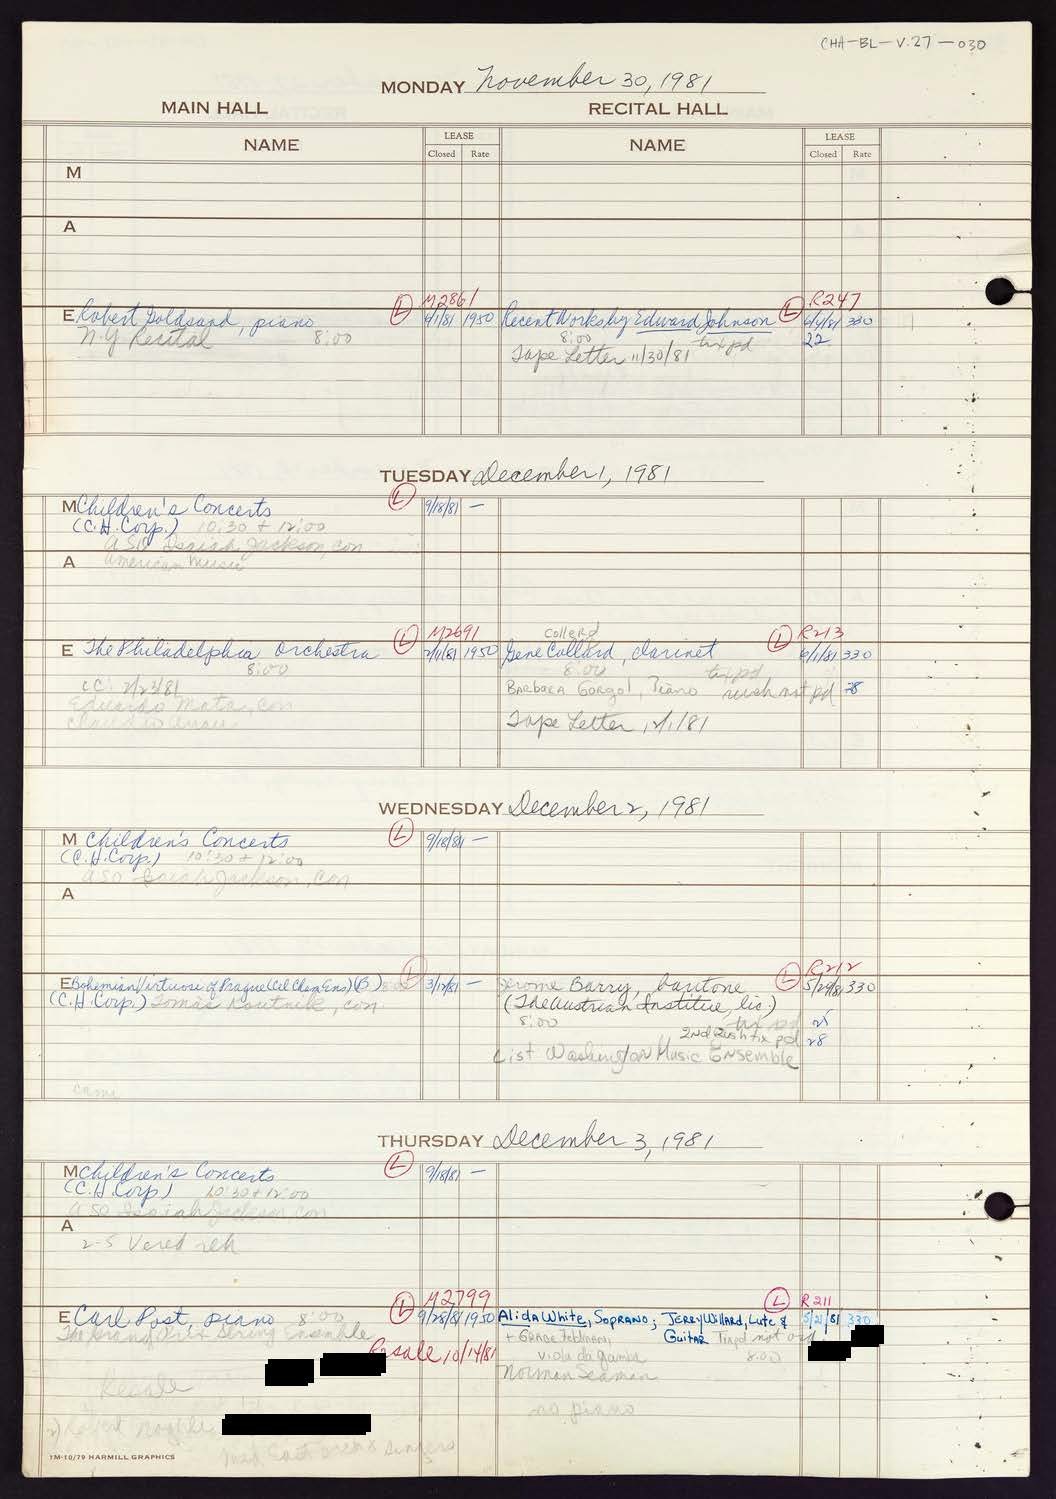 CHA-BL-V.27-030
MONDAY November 30, 1981
MAIN HALL RECITAL HALL
NAME LEASE Closed Rate NAME LEASE Closed Rate
M
A
M2861 R247
E Robert Goldsand, piano L 6/1/81 1950 Recent Works by Edward Johnson L 6/4/81 330
N.Y. Recital 8:00 8:00 tix pd 22
Tape Letter 11/30/81
TUESDAY December 1, 1981
M Children's Concerts L 9/18/81 —
(C.H. Corp.) 10:30 + 12:00
ASO Isaiah Jackson, con
A American Music
M2691 Collerd R213
E The Philadelphia Orchestra L 2/11/81 1950 Gene Collard, clarinet L 6/1/81 330
8:00 8:00 tix pd
cc: 2/23/81 Barbara Gorgol, Piano rush not pd 28
Eduardo Mata, con
Claudio Arrau Tape Letter 12/1/81
WEDNESDAY December 2, 1981
M Children's Concerts L 9/18/81 —
(C.H. Corp.) 10:30 + 12:00
ASO Isaiah Jackson, con
A
R212
E Bohemian Virtuosi of Prague (Cel Cham Ens) (B) L 3/12/81 — Jerome Barry, baritone L 5/29/81 330
(C.H. Corp.) Tomas Koutnik, con (The Austrian Institue, lic.)
8:00 tix pd 25
2nd Rush tix pd 28
List Washington Music Ensemble
cami
THURSDAY December 3, 1981
M Children's Concerts L 9/18/81 —
(C.H. Corp) 10:30 + 12:00
ASO Isaiah Jackson, con
A
2-5 Vered reh
M2799 R211
E Carl Post, piano 8:00 L 9/28/81 1950 Alida White, Soprano; Jerry Willard, Lute & L 5/21/81 330
The Grand Prix String Ensemble + Grace Feldman, Guitar Tix pd not
Resale 10/14/81 viola da gamba 8:00
Resale Norman Seaman
no piano
2) Robert
Singers
1M-10/79 HARMILL GRAPHICS